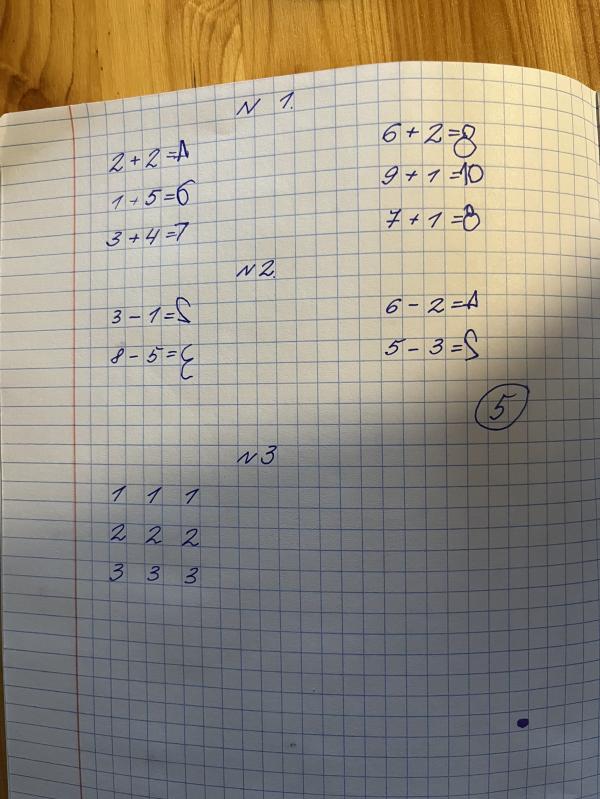 N 1.
2 + 2 = 4 6 + 2 = 8
1 + 5 = 6 9 + 1 = 10
3 + 4 = 7 7 + 1 = 8
N 2.
3 - 1 = 2 6 - 2 = 4
8 - 5 = 3 5 - 3 = 2
5
N 3
1 1 1
2 2 2
3 3 3